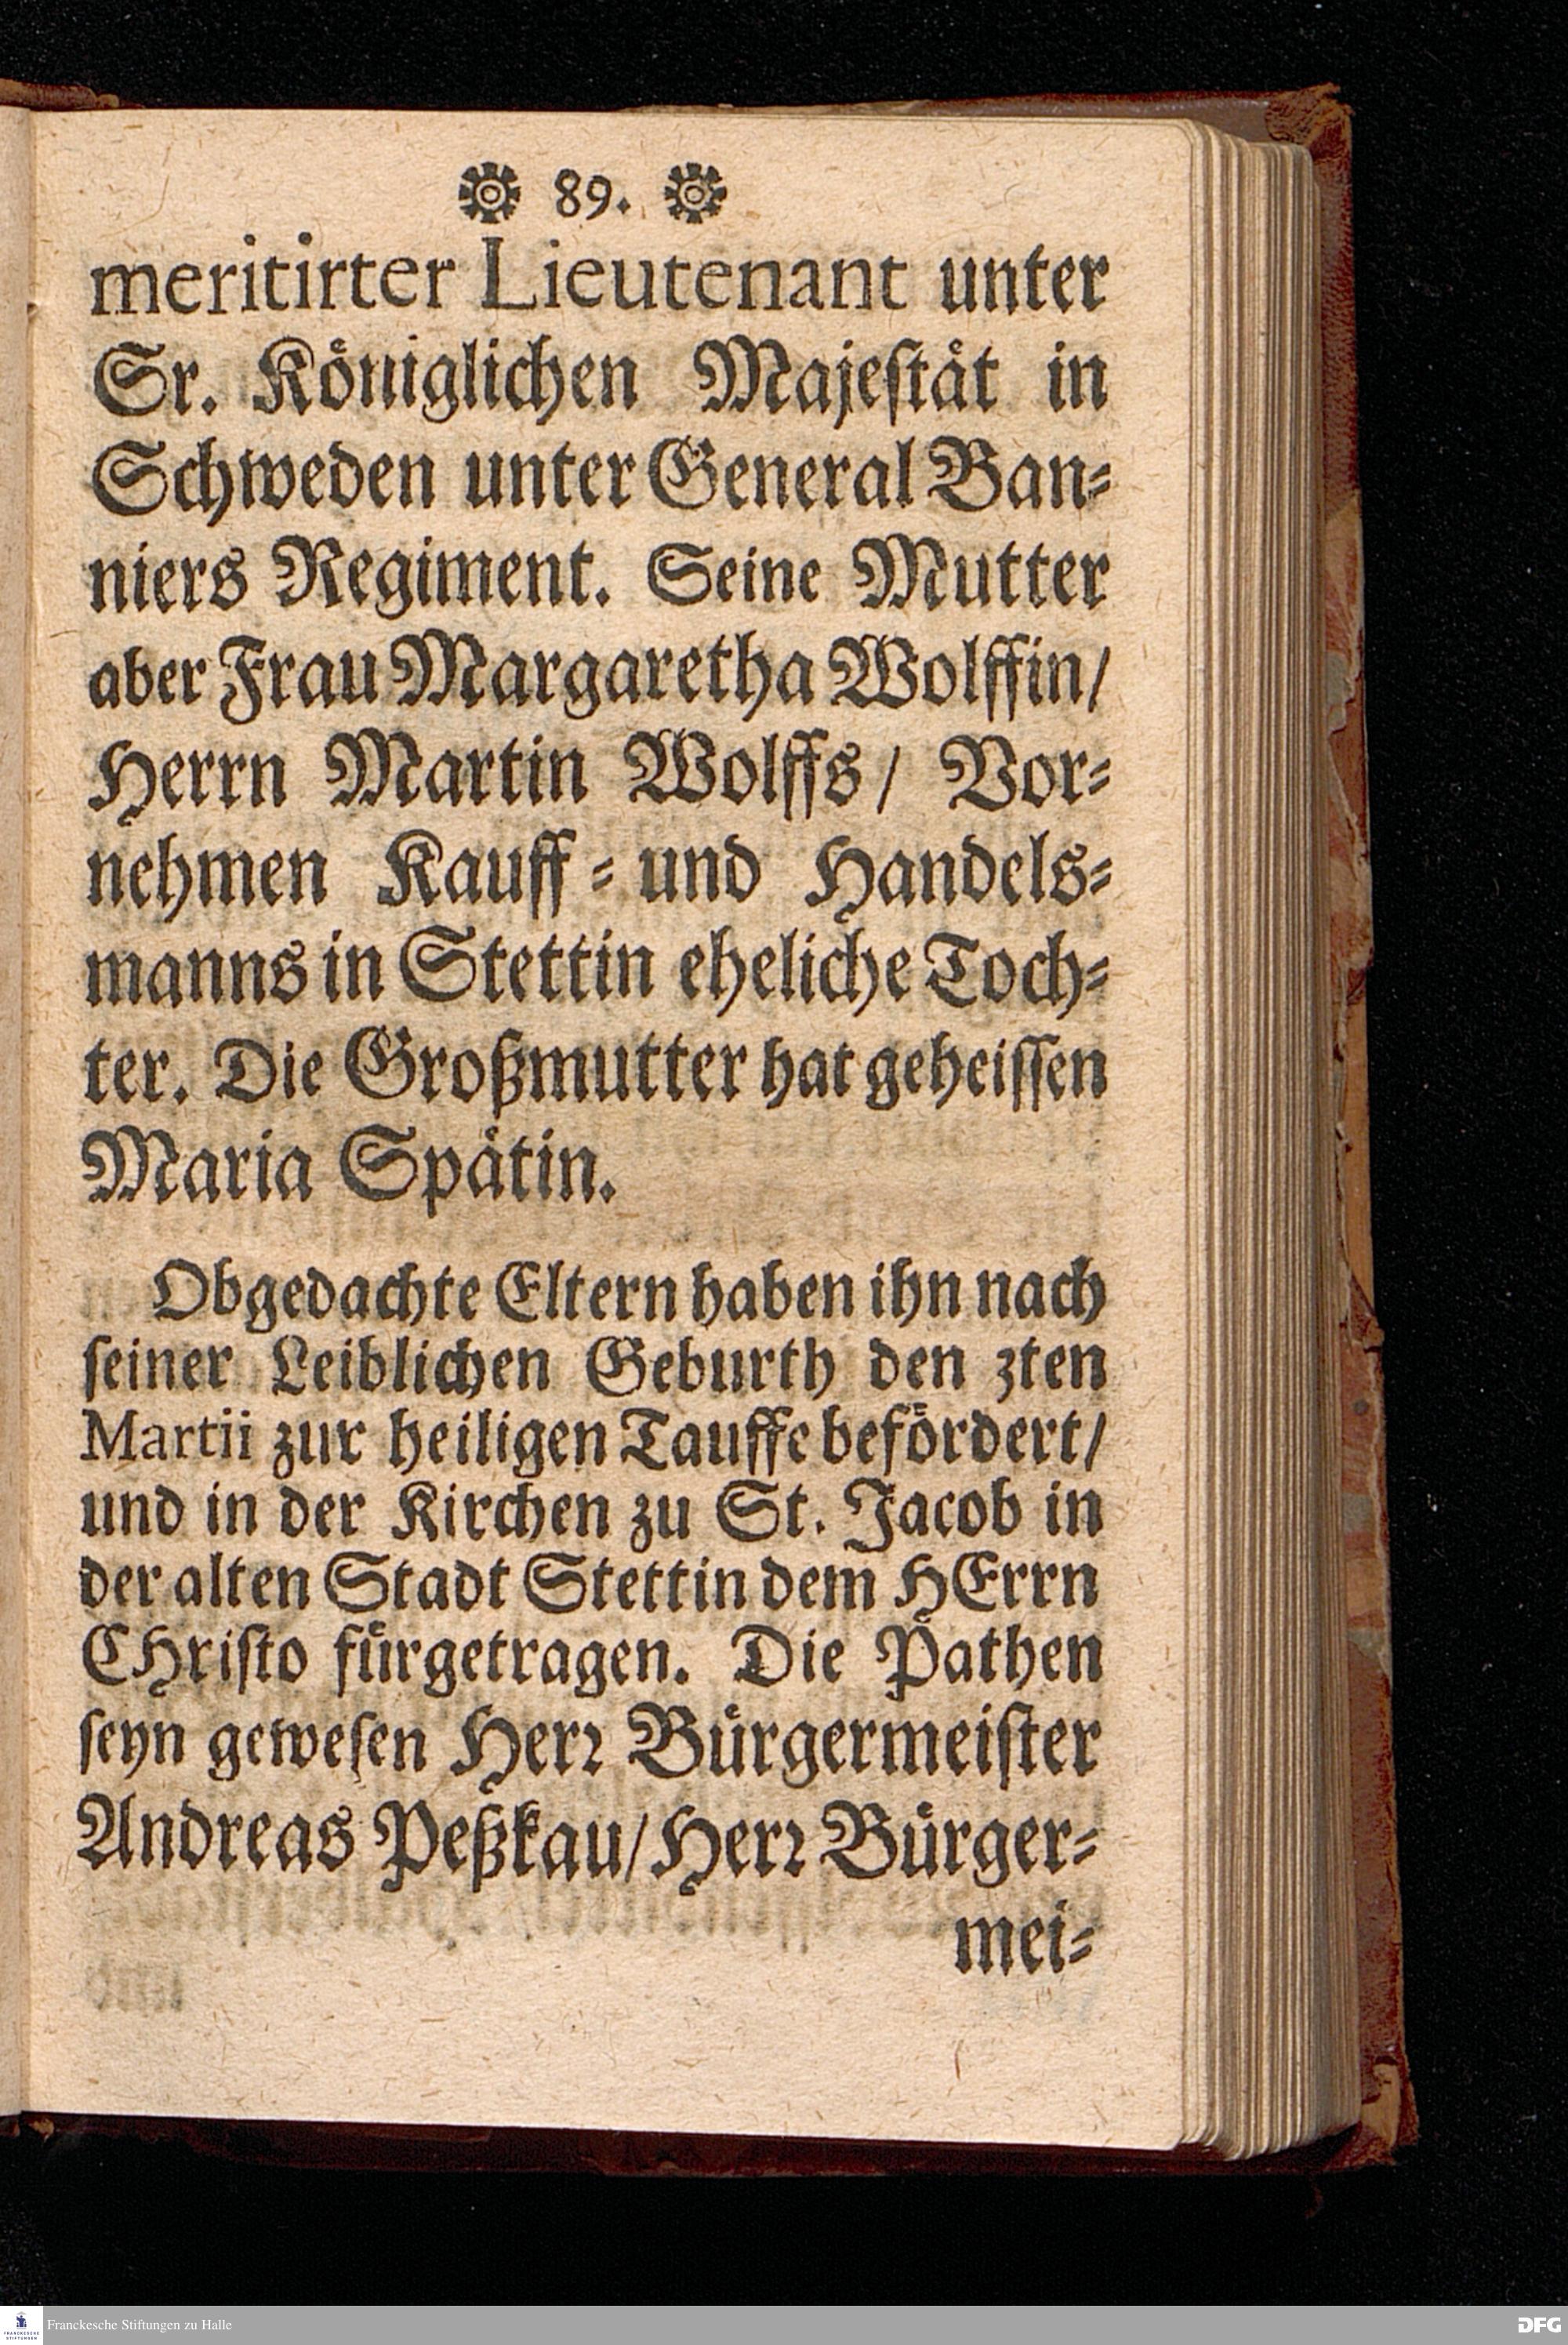 89.
meritirter Lieutenant unter
Sr. Königlichen Majestät in
Schweden unter General Ban-
niers Regiment. Seine Mutter
aber Frau Margaretha Wolffin/
Herrn Martin Wolffs/ Vor-
nehmen Kauff- und Handels-
manns in Stettin eheliche Toch-
ter. Die Großmutter hat geheissen
Maria Spätin.
Obgedachte Eltern haben ihn nach
seiner Leiblichen Geburth den 3ten
Martii zur heiligen Tauffe befördert/
und in der Kirchen zu St. Jacob in
der alten Stadt Stettin dem HErrn
CHristo fürgetragen. Die Pathen
seyn gewesen Herr Bürgermeister
Andreas Peßkau/ Herr Bürger-
mei-
Franckesche Stiftungen zu Halle
DFG